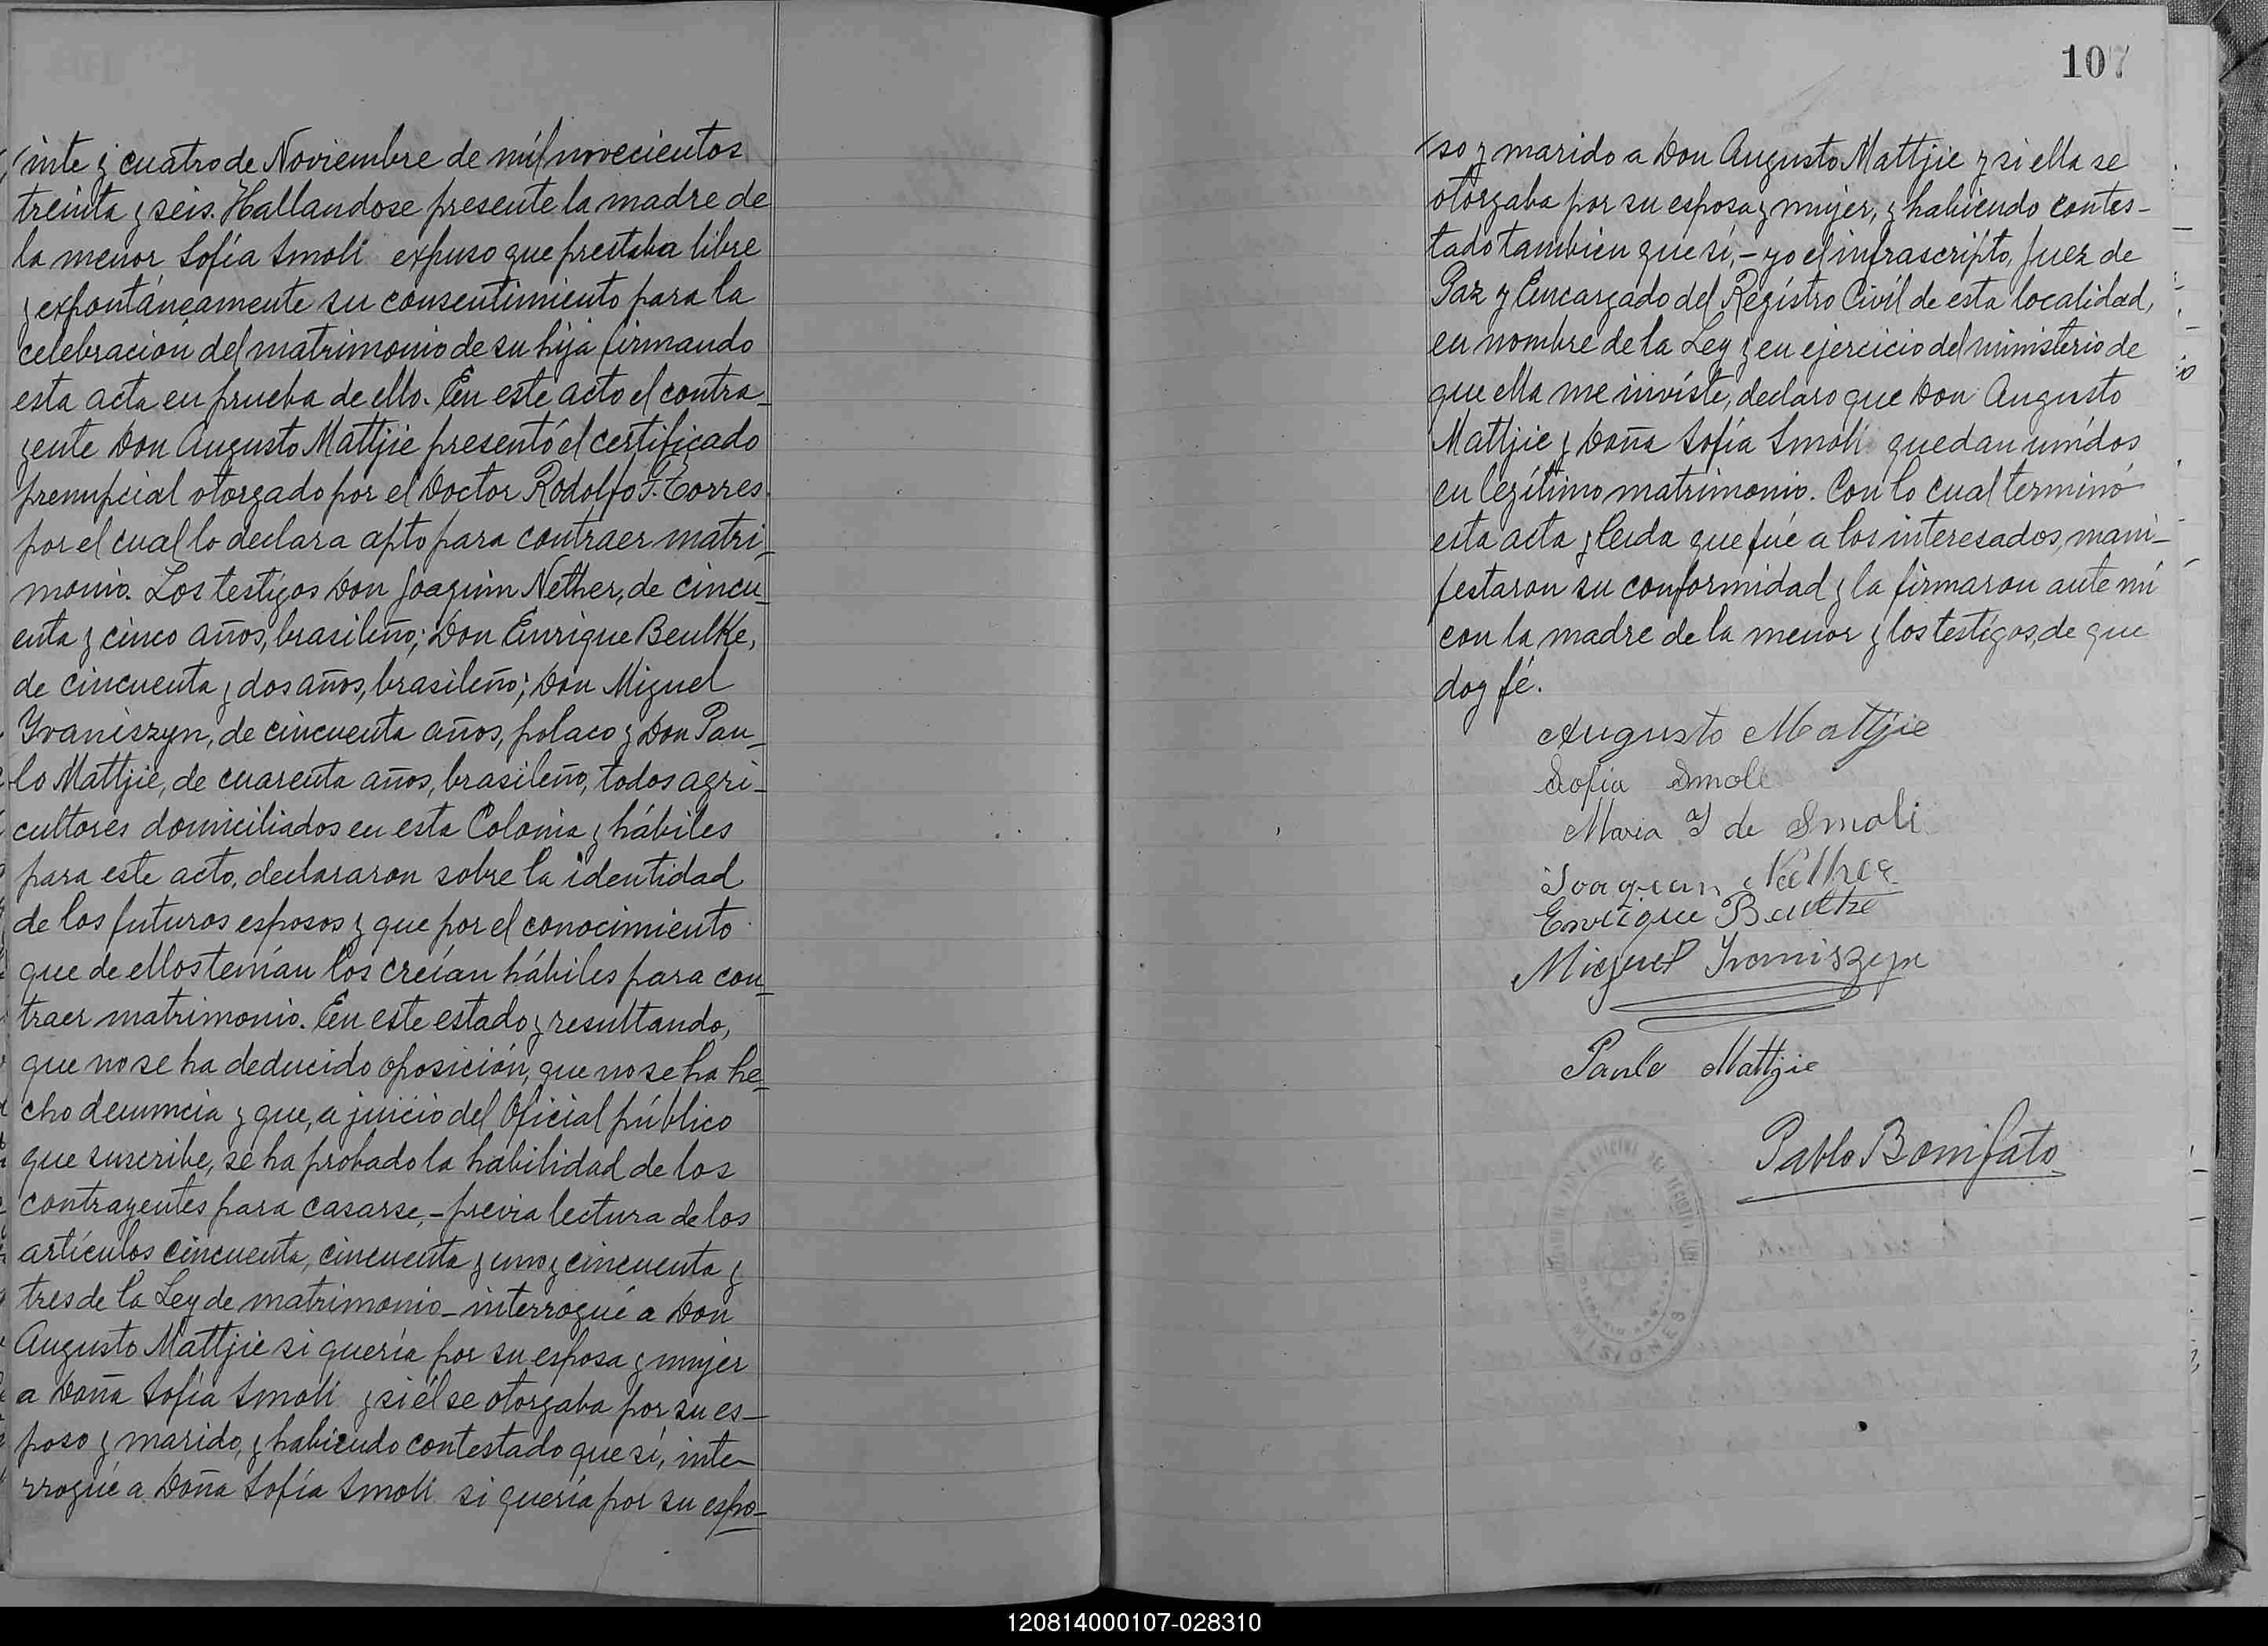 inte y cuatro de Noviembre de mil novecientos
treinta y seis. Hallandose presente la madre de
la menor Sofía Smolí expuso que prestaba libre
y expontáneamente su consentimiento para la
celebración del matrimonio de su hija firmando
esta acta en prueba de ello. En este acto el contra-
yente Don Augusto Mattjie presentó el certificado
prenupcial otorgado por el Doctor Rodolfo F. Torres
por el cual lo declara apto para contraer matri-
monio. Los testigos Don Joaquin Nether, de cincu-
enta y cinco años, brasileño; Don Enrique Beulke,
de cincuenta y dos años, brasileño; Don Miguel
Yvaniszyn, de cincuenta años, polaco y Don Pau-
lo Mattjie, de cuarenta años, brasileño, todos agri-
cultores domiciliados en esta Colonia y hábiles
para este acto, declararon sobre la identidad
de los futuros esposos y que por el conocimiento
que de ellos tenían los creían hábiles para con-
traer matrimonio. En este estado y resultando,
que no se ha deducido oposición, que no se ha he-
cho denuncia y que, a juicio del Oficial público
que suscribe, se ha probado la habilidad de los
contrayentes para casarse,- previa lectura de los
artículos cincuenta, cincuenta y uno y cincuenta y
tres de la Ley de matrimonio - interrogué a Don
Augusto Mattjie si quería por su esposa y mujer
a Doña Sofía Smolí y si él se otorgaba por su es-
poso y marido, y habiendo contestado que sí, inte-
rrogué a Doña Sofía Smolí si quería por su espo-
107
so y marido a Don Augusto Mattjie y si ella se
otorgaba por su esposa y mujer, y habiendo contes-
tado tambien que sí,- yo el infrascripto, Juez de
Paz y Encargado del Registro Civil de esta localidad,
en nombre de la Ley y en ejercicio del ministerio de
que ella me inviste, declaro que Don Augusto
Mattjie y Doña Sofía Smolí quedan unidos
en legítimo matrimonio. Con lo cual terminó
esta acta y leida que fué a los interesados, mani-
festaron su conformidad y la firmaron ante mí
con la madre de la menor y los testigos, de que
doy fé.
Augusto Mattjie
Sofia Smoli
Maria I de Smoli
Joaquin Nether
Enrique Beulke
Miguel Ivaniszyn
Paulo Mattjie
Pablo Bonifato
MISIONES
120814000107-028310